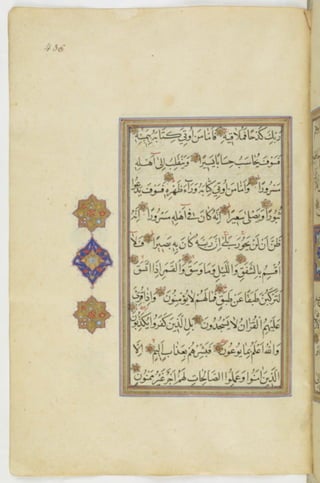 436
رَبِّكَ كَدْحًا فَمُلَاقِيهِ فَأَمَّا مَنْ أُوتِيَ كِتَابَهُ بِيَمِينِهِ
فَسَوْفَ يُحَاسَبُ حِسَابًا يَسِيرًا وَيَنْقَلِبُ إِلَى أَهْلِهِ
مَسْرُورًا وَأَمَّا مَنْ أُوتِيَ كِتَابَهُ وَرَاءَ ظَهْرِهِ فَسَوْفَ يَدْعُو
ثُبُورًا وَيَصْلَى سَعِيرًا إِنَّهُ كَانَ فِي أَهْلِهِ مَسْرُورًا إِنَّهُ
ظَنَّ أَنْ لَنْ يَحُورَ بَلَى إِنَّ رَبَّهُ كَانَ بِهِ بَصِيرًا فَلَا
أُقْسِمُ بِالشَّفَقِ وَاللَّيْلِ وَمَا وَسَقَ وَالْقَمَرِ إِذَا اتَّسَقَ
لَتَرْكَبُنَّ طَبَقًا عَنْ طَبَقٍ فَمَا لَهُمْ لَا يُؤْمِنُونَ وَإِذَا قُرِئَ
عَلَيْهِمُ الْقُرْآنُ لَا يَسْجُدُونَ بَلِ الَّذِينَ كَفَرُوا يُكَذِّبُونَ
وَاللَّهُ أَعْلَمُ بِمَا يُوعُونَ فَبَشِّرْهُمْ بِعَذَابٍ أَلِيمٍ إِلَّا
الَّذِينَ آمَنُوا وَعَمِلُوا الصَّالِحَاتِ لَهُمْ أَجْرٌ غَيْرُ مَمْنُونٍ